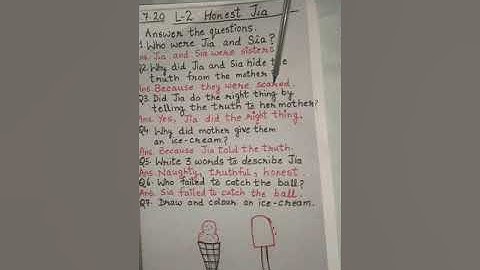 7.20 L-2 Honest Jia
Answer the questions.
Who were Jia and Sia?
Ans. Jia and Sia were sisters
Q2. Why did Jia and Sia hide the
truth from the mother
Ans. Because they were scared.
Q3. Did Jia do the right thing by
telling the truth to her mother?
Ans. Yes, Jia did the right thing.
Q4. Why did mother give them
an ice-cream?
Ans. Because Jia told the truth.
Q5. Write 3 words to describe Jia
Ans. Naughty, truthful, honest.
Q6. Who failed to catch the ball?
Ans. Sia failed to catch the ball.
Q7. Draw and colour an ice-cream.